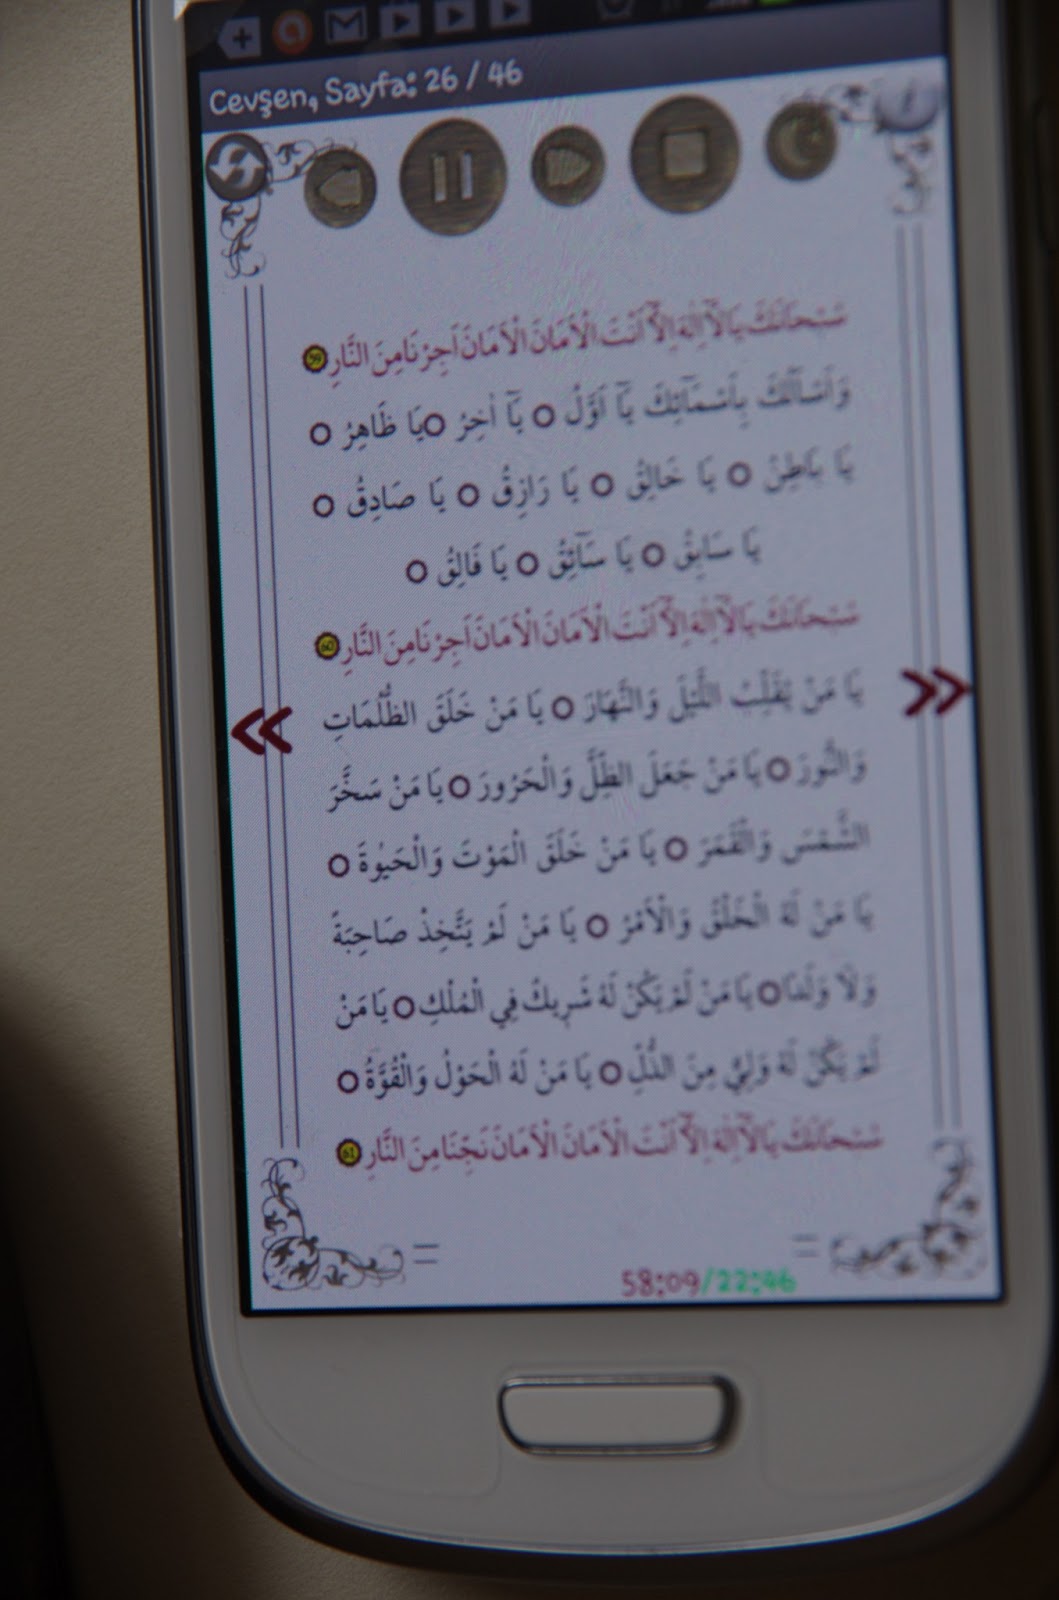 Cevşen, Sayfa: 26 / 46
سُبْحَانَكَ يَا لَآ اِلٰهَ اِلَّآ اَنْتَ الْاَمَانَ الْاَمَانَ اَجِرْنَا مِنَ النَّارِ 59
وَاَسْأَلُكَ بِاَسْمَآئِكَ يَآ اَوَّلُ ○ يَآ اٰخِرُ ○ يَا ظَاهِرُ ○
يَا بَاطِنُ ○ يَا خَالِقُ ○ يَا رَازِقُ ○ يَا صَادِقُ ○
يَا سَابِقُ ○ يَا سَآئِقُ ○ يَا فَالِقُ ○
سُبْحَانَكَ يَا لَآ اِلٰهَ اِلَّآ اَنْتَ الْاَمَانَ الْاَمَانَ اَجِرْنَا مِنَ النَّارِ 60
يَا مَنْ يُقَلِّبُ اللَّيْلَ وَالنَّهَارَ ○ يَا مَنْ خَلَقَ الظُّلُمَاتِ
وَالنُّورَ ○ يَا مَنْ جَعَلَ الظِّلَّ وَالْحَرُورَ ○ يَا مَنْ سَخَّرَ
الشَّمْسَ وَالْقَمَرَ ○ يَا مَنْ خَلَقَ الْمَوْتَ وَالْحَيٰوةَ ○
يَا مَنْ لَهُ الْخَلْقُ وَالْاَمْرُ ○ يَا مَنْ لَمْ يَتَّخِذْ صَاحِبَةً
وَلَا وَلَدًا ○ يَا مَنْ لَمْ يَكُنْ لَهُ شَرِيكٌ فِي الْمُلْكِ ○ يَا مَنْ
لَمْ يَكُنْ لَهُ وَلِيٌّ مِنَ الذُّلِّ ○ يَا مَنْ لَهُ الْحَوْلُ وَالْقُوَّةُ ○
سُبْحَانَكَ يَا لَآ اِلٰهَ اِلَّآ اَنْتَ الْاَمَانَ الْاَمَانَ نَجِّنَا مِنَ النَّارِ 61
58:09/22:46